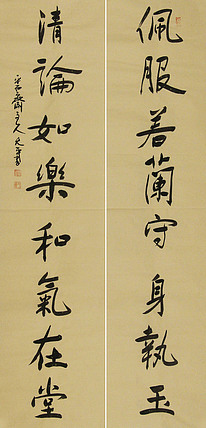 佩服若蘭守身執玉
清論如樂和氣在堂